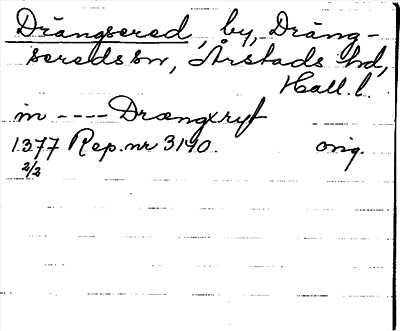 Drängsered, by, Dräng-
sereds sn, Årstads hd,
Hall. l.
in ---- Drængxryt
1377 Rep. nr 3140. orig.
2/2